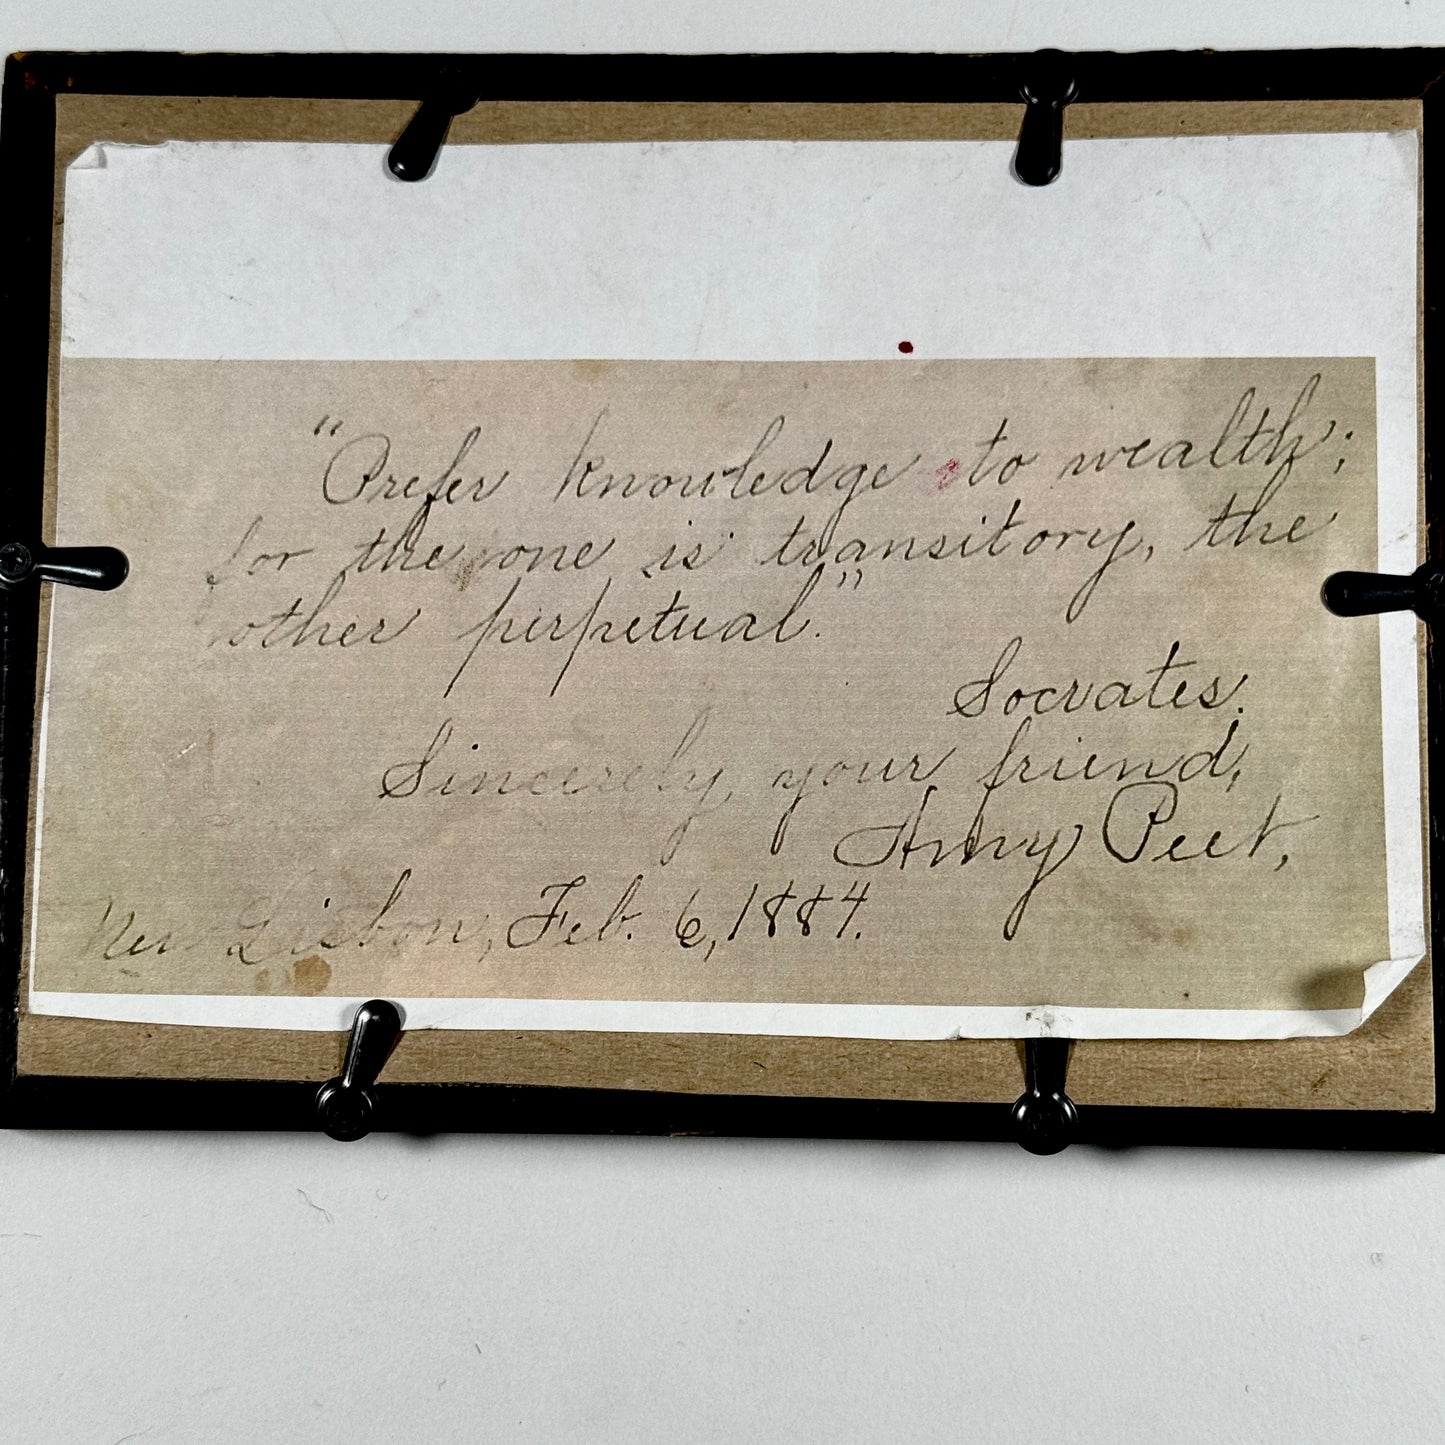 "Prefer knowledge to wealth;
for the one is transitory, the
other perpetual."
Socrates.
Sincerely, your friend,
Amy Peet,
New Lisbon, Feb. 6, 1884.